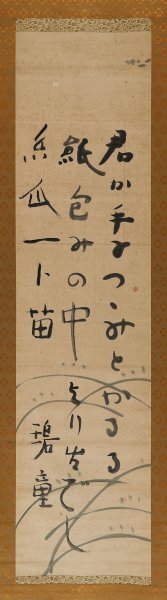 君か手につゝみとかるる
紙包みの中より出でし
糸瓜一ト苗
碧童